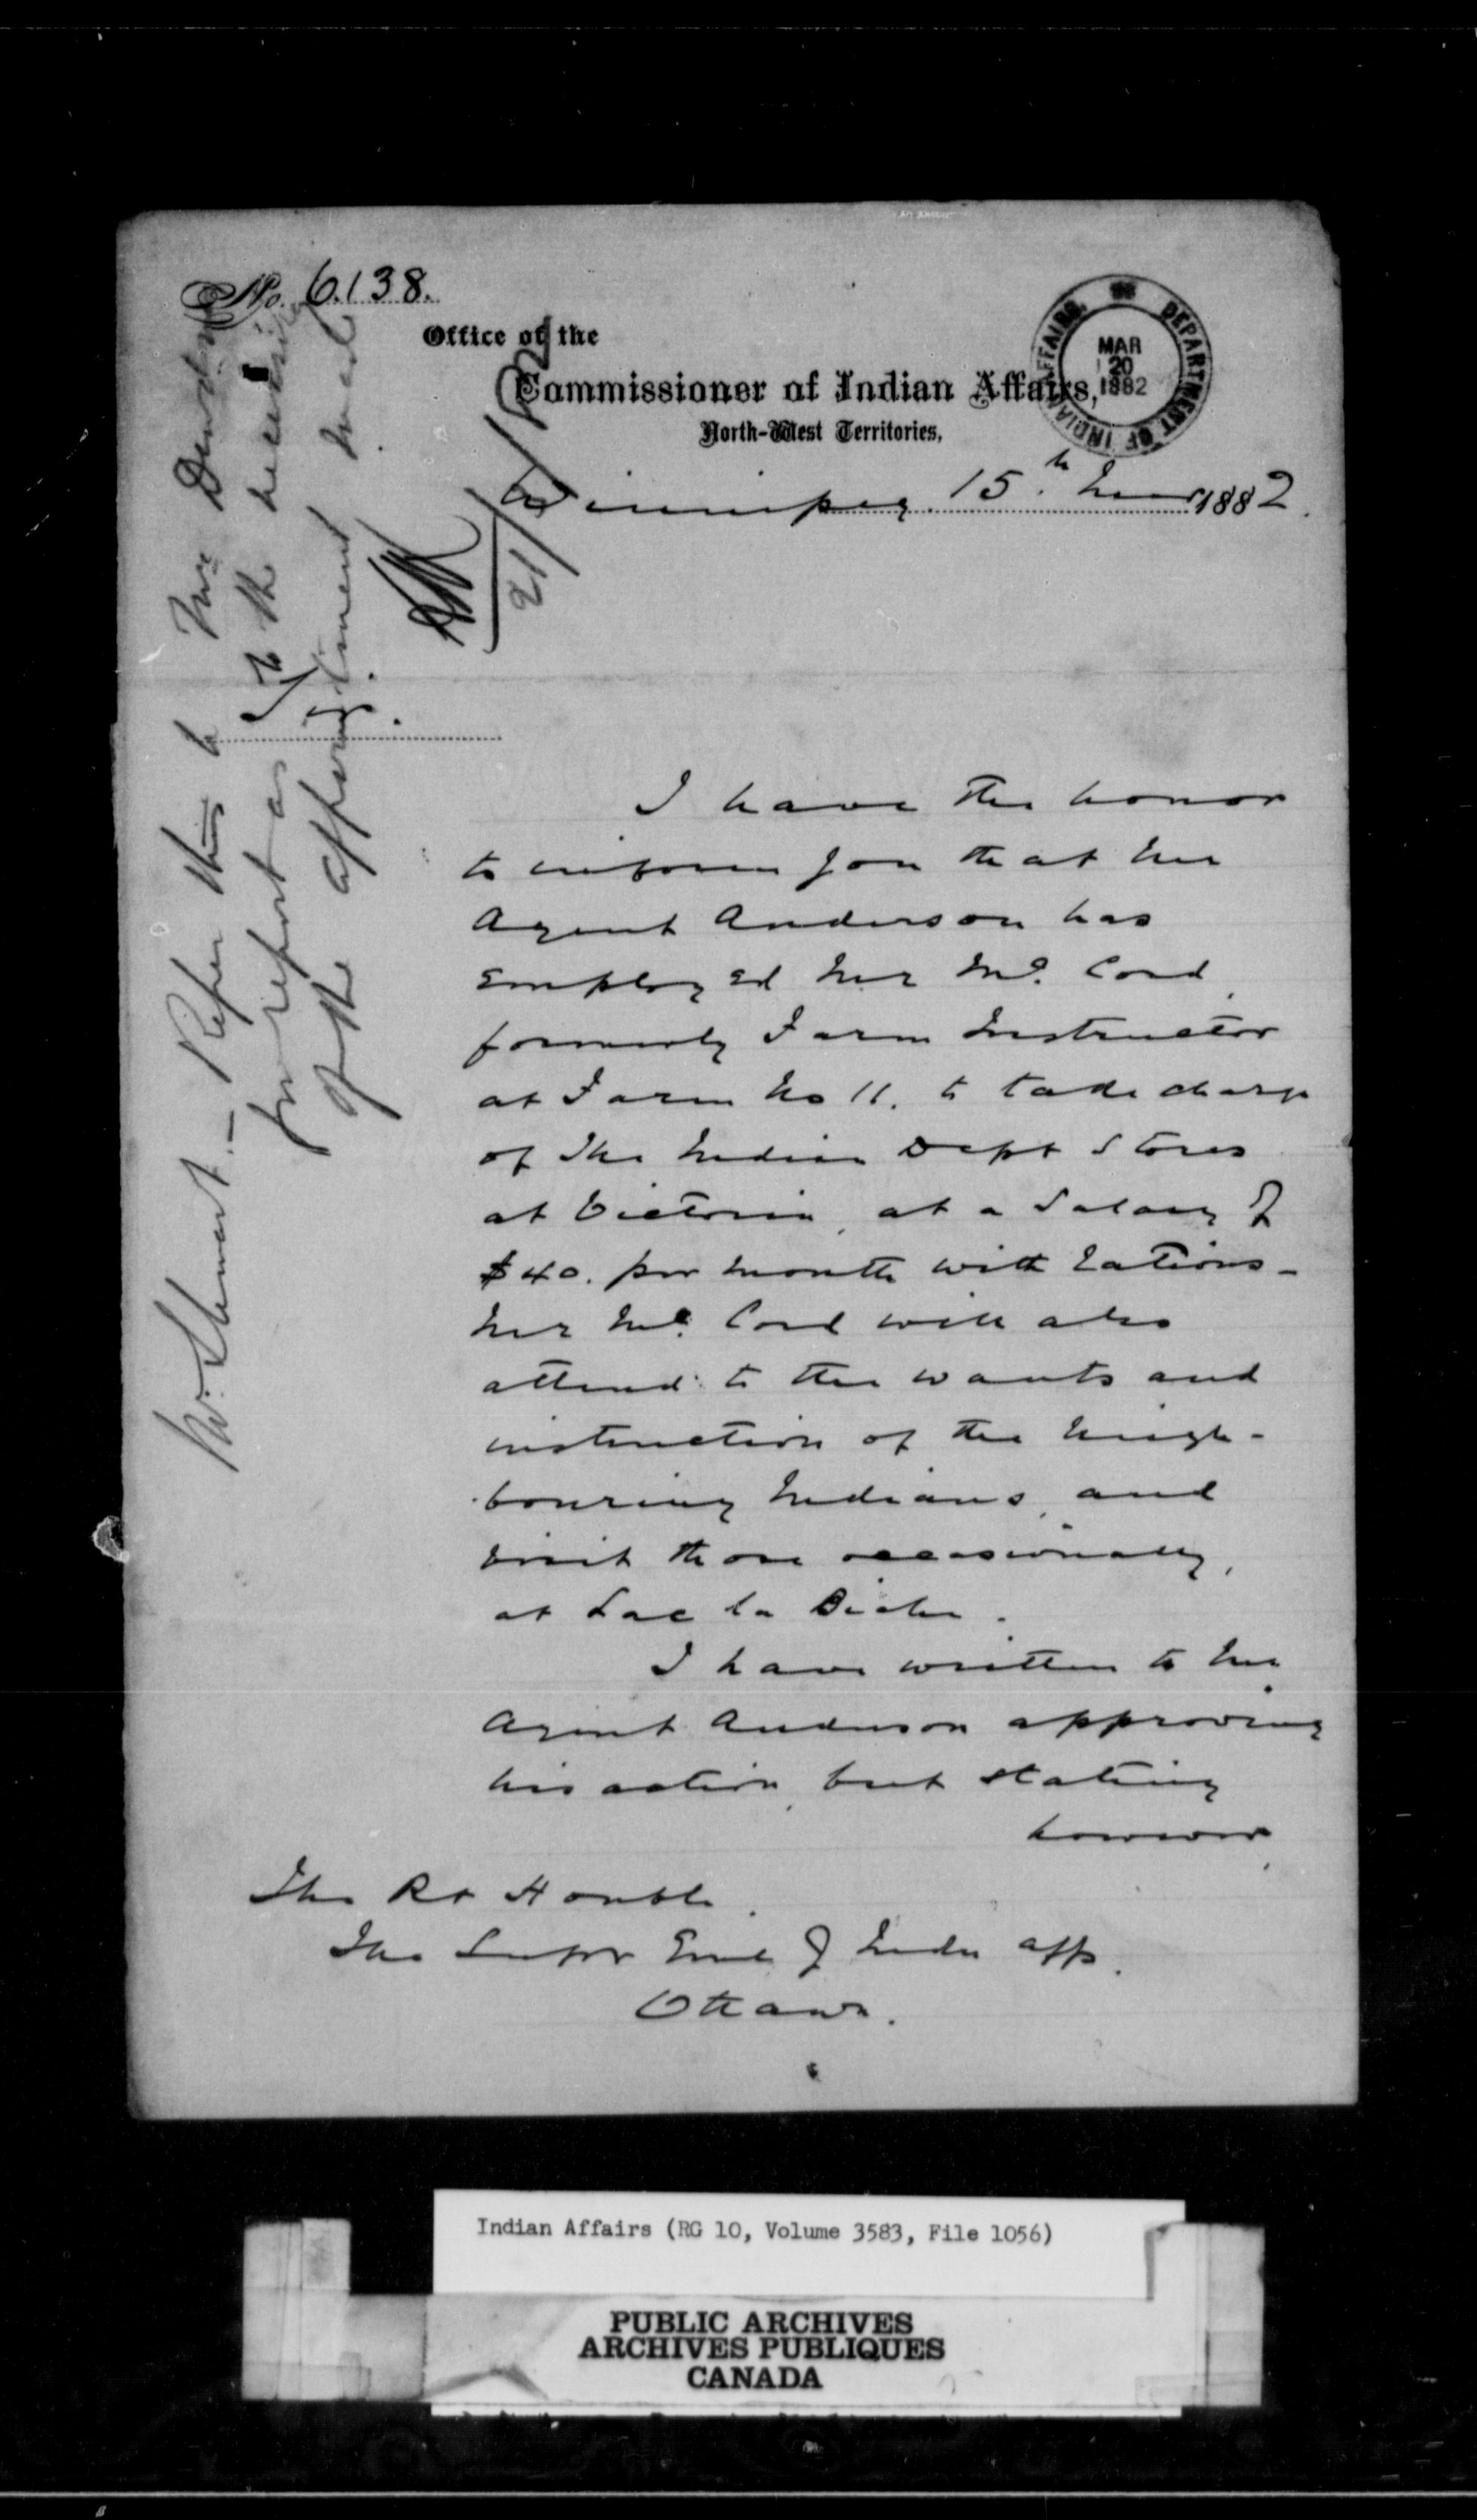 No. 6138.
Office of the
Commissioner of Indian Affairs,
North-West Territories,
DEPARTMENT OF INDIAN AFFAIRS.
MAR
20
1882
Winnipeg 15th Mar 1882.
Sir.
Mr. Stewart. – Refer this to Mr Dewdney
for report as to the necessity
of the appointment made
21/3/82
I have the honor
to inform you that Mr
Agent Anderson has
Employed Mr Mc. Cord,
formerly Farm Instructor
at Farm No 11. to take charge
of the Indian Dept Stores
at Victoria, at a Salary of
$40. per month with rations –
Mr Mc. Cord will also
attend to the wants and
instruction of the neigh-
bouring Indians, and
visit those occasionally,
at Lac la Biche.
I have written to Mr
Agent Anderson approving
his action, but stating
however,
The Rt Honble.
The Supr Genl of Indn Affs.
Ottawa.
Indian Affairs (RG 10, Volume 3583, File 1056)
PUBLIC ARCHIVES
ARCHIVES PUBLIQUES
CANADA